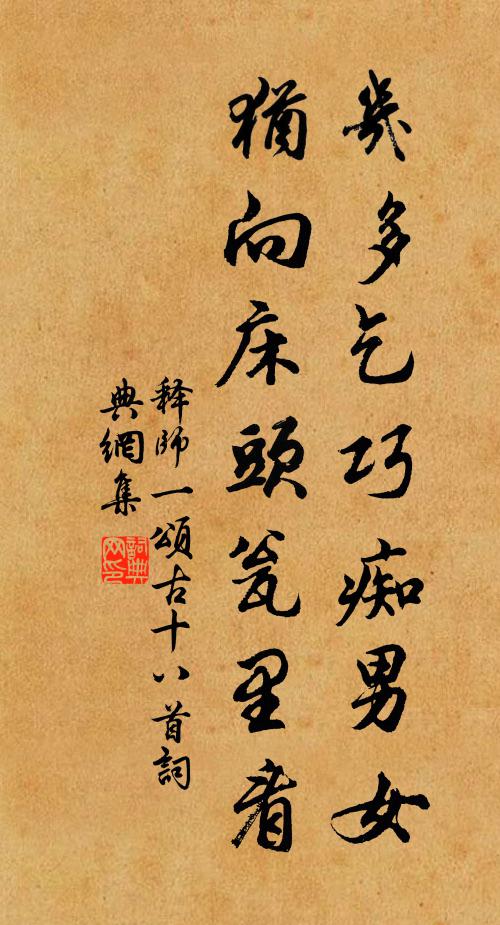 幾多乞巧痴男女
猶向床頭瓮里看
释師一頌古十八首詞
典網集
詞典
网印